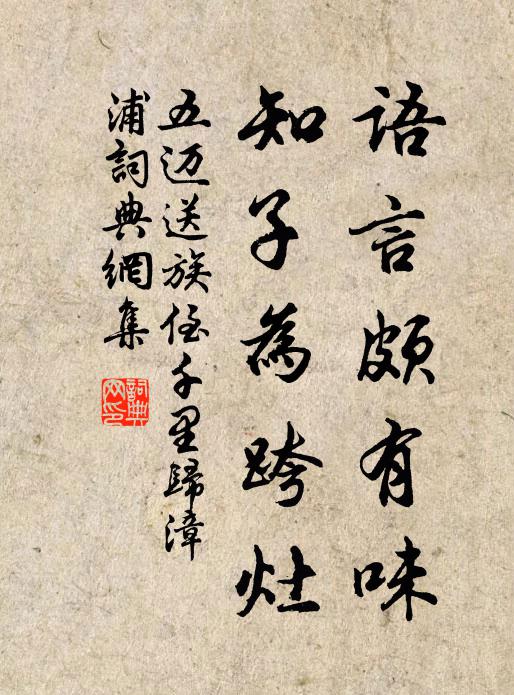 語言頗有味
知子為跨灶
五迈送族侄千里歸漳
浦詞典網集
詞典
网印